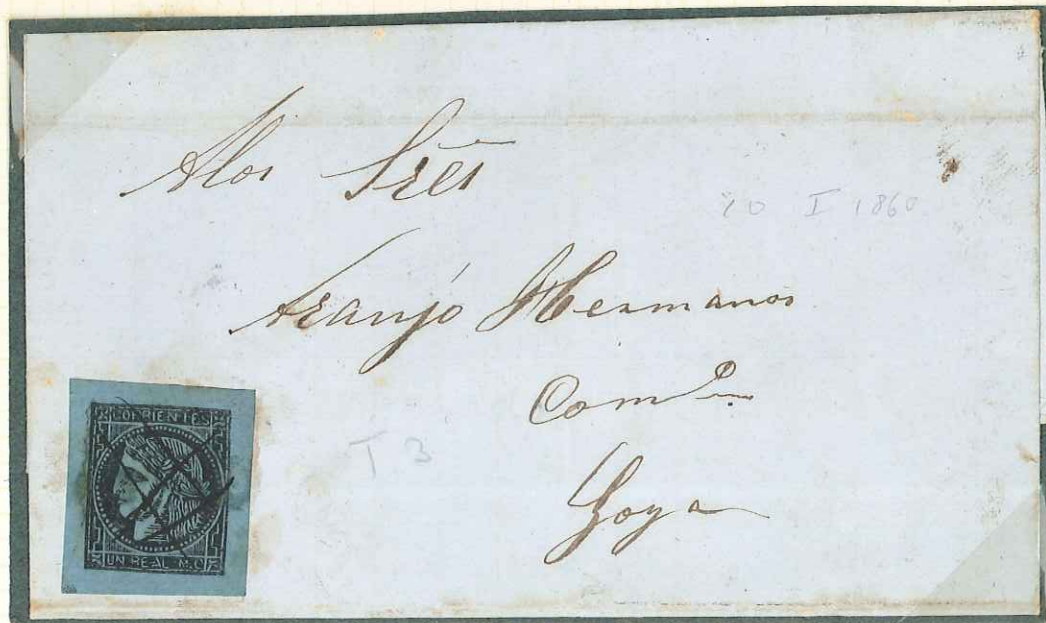 Alos Sres
10 I 1860
Aranjó Hermanos
Com
Goya
T 3
CORRIENTES
UN REAL M.C.